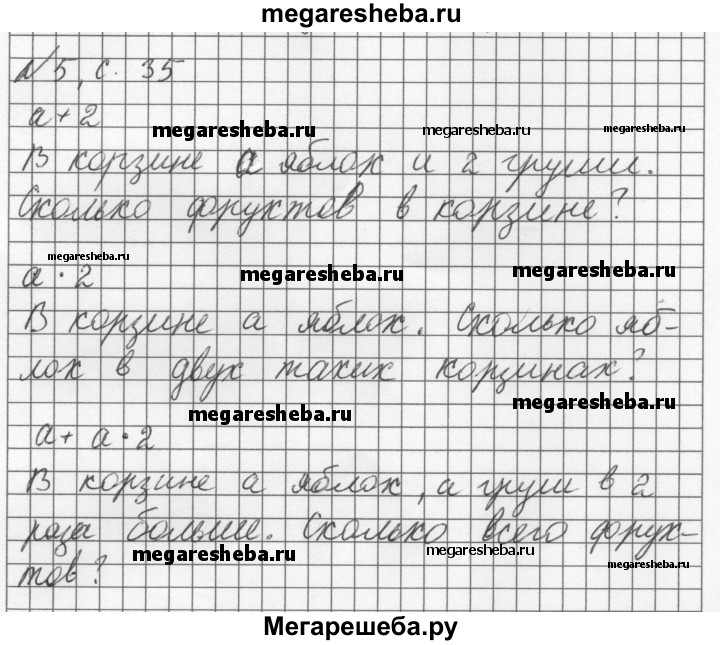 megaresheba.ru
№5, с. 35
a+2
megaresheba.ru megaresheba.ru megaresheba.ru
В корзине а яблок и 2 груши.
Сколько фруктов в корзине?
megaresheba.ru megaresheba.ru megaresheba.ru
a · 2
В корзине а яблок. Сколько яб-
лок в двух таких корзинах?
megaresheba.ru megaresheba.ru
a + a · 2
В корзине а яблок, а груш в 2
раза больше. Сколько всего фрук-
megaresheba.ru megaresheba.ru megaresheba.ru
тов?
Мегарешеба.ру